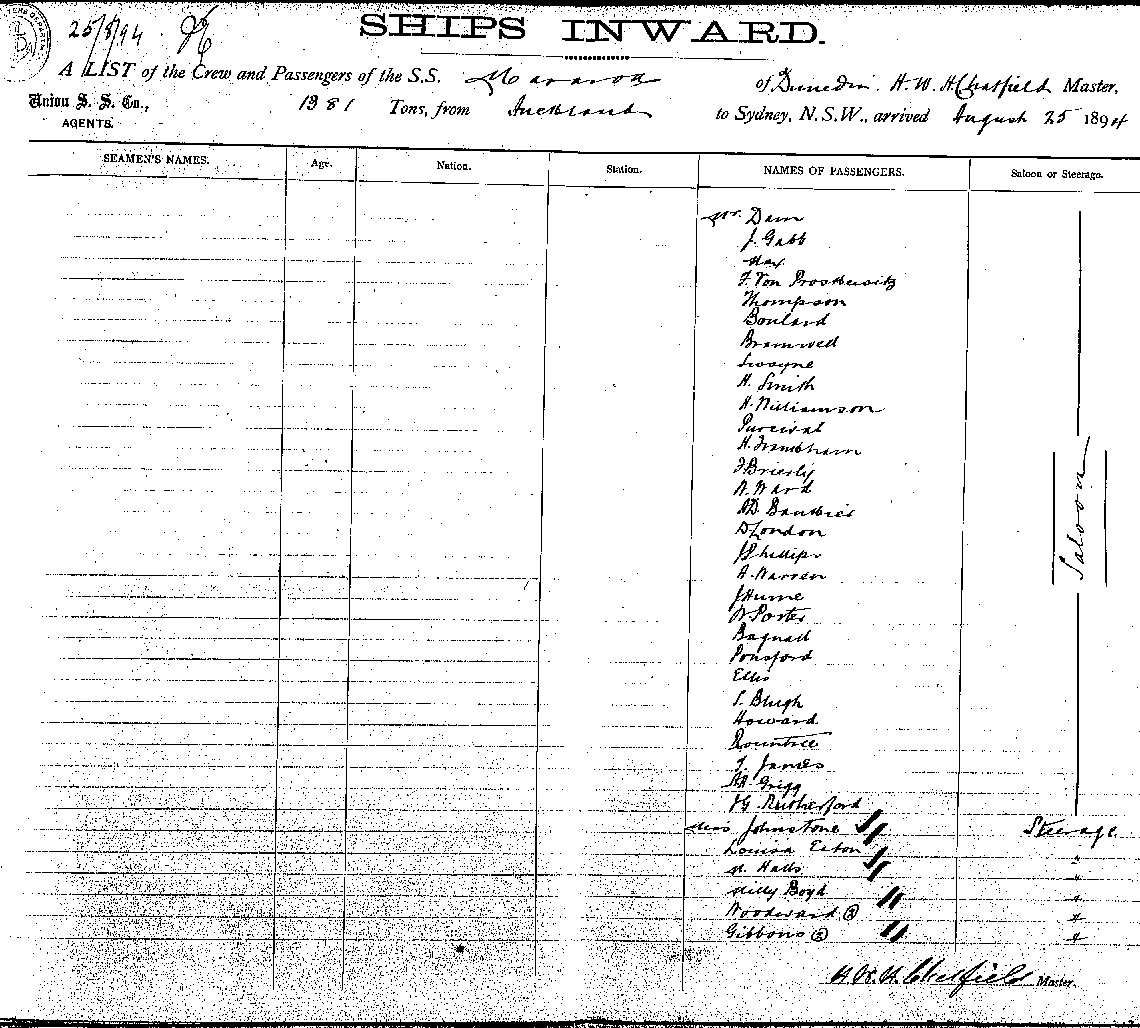 25/8/94
SHIPS INWARD.
A LIST of the Crew and Passengers of the S.S. Mararoa of Dunedin. H. W. H. Chatfield Master,
Union S. S. Co., 1381 Tons, from Auckland to Sydney, N.S.W., arrived August 25 1894
AGENTS.
SEAMEN'S NAMES. Age. Nation. Station. NAMES OF PASSENGERS. Saloon or Steerage.
Mr. Dawn
J. Gabb
F. Von Proskersitz
Thompson
Boulard
Bramwell
Swayne
H. Smith
H. Williamson
Percival
H.
J Brierly
W. Ward
D London
J Phillips
A. Warren
J Hume
W. Porter
Bagnall
Ponsford
Ellis
S. Bligh
Howard
Rountree
T. James
Grigg
J G. Rutherford
Saloon
Miss Johnstone Steerage
Louisa Eaton "
Halls "
Milly Boyd "
Woodward "
Gibbons "
H. W. H. Chatfield Master.